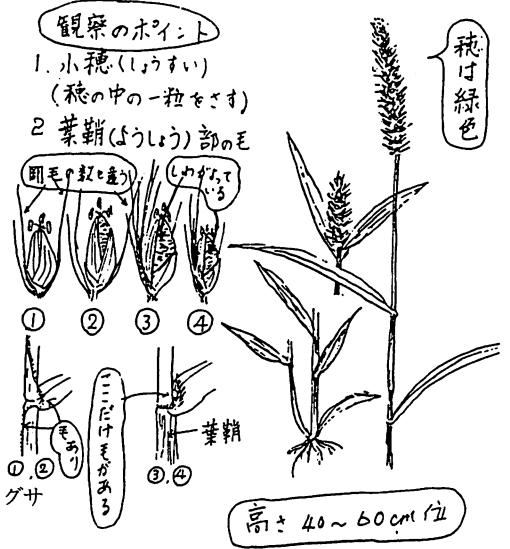 観察のポイント
1. 小穂(しょうすい)
(穂の中の一粒をさす)
2 葉鞘(ようしょう)部の毛
剛毛の数も違う
しわがよって
いる
① ② ③ ④
毛あり
①,②
グサ
ここだけ毛がある
葉鞘
③,④
穂は緑色
高さ 40~60cm位